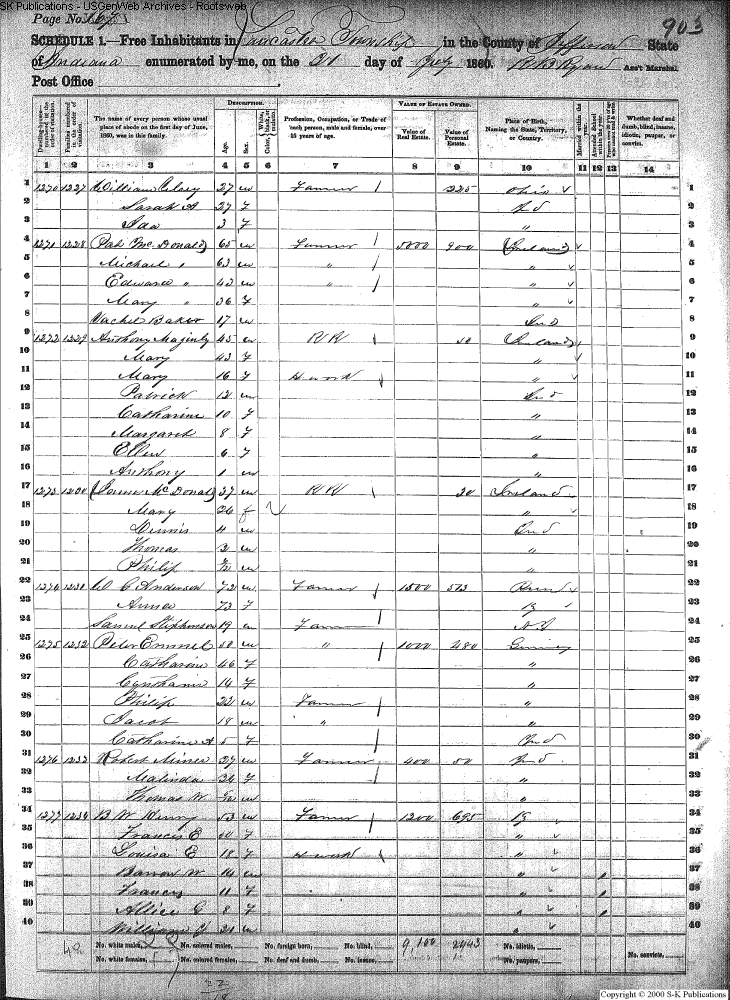 SK Publications - USGenWeb Archives - Rootsweb
Page No. 903
SCHEDULE 1.—Free Inhabitants in Lancaster Township in the County of Jefferson State
of Indiana enumerated by me, on the 21 day of July 1860. R B Ryan Ass't Marshal.
Post Office
Dwelling-houses numbered in the order of visitation. Families numbered in the order of visitation. The name of every person whose usual place of abode on the first day of June, 1860, was in this family. DESCRIPTION. Age. Sex. Color, White, black, or mulatto. Profession, Occupation, or Trade of each person, male and female, over 15 years of age. VALUE OF ESTATE OWNED. Value of Real Estate. Value of Personal Estate. Place of Birth, Naming the State, Territory, or Country. Married within the year. Attended School within the year. Whether deaf and dumb, blind, insane, idiotic, pauper, or convict.
1 2 3 4 5 6 7 8 9 10 11 12 13 14
1 1270 1227 William 27 m Farmer 225 Ohio 1
2 Sarah A 27 f Ind 2
3 Ada 3 f " 3
4 1271 1228 Pat McDonald 65 m Farmer 5000 900 Ireland 4
5 Michael " 63 m " " 5
6 Edward " 43 m " " 6
7 Mary " 36 f " 7
8 Vachel Baker 17 m Ind 8
9 1272 1229 Anthony Maginty 45 m RR 50 Ireland 9
10 Mary 43 f " 10
11 Mary 16 f H work " 11
12 Patrick 12 m Ind 12
13 Catharine 10 f " 13
14 Margaret 8 f " 14
15 Ellen 6 f " 15
16 Anthony 1 m " 16
17 1273 1230 McDonald 37 m RR 20 Ireland 17
18 Mary 26 f " 18
19 Dennis 4 m Ind 19
20 Thomas 2 m " 20
21 Philip m " 21
22 1274 1231 W C Anderson 72 m Farmer 1500 513 22
23 73 f 23
24 Samuel Stephenson 19 m Farm 24
25 1275 1232 Peter Emmel 50 m " 1000 280 25
26 Catharine 46 f " 26
27 Cynthann 14 f " 27
28 Philip 22 m Farmer " 28
29 Jacob 18 m " " 29
30 Catharine A 5 f Ind 30
31 1276 1233 Robert Miner 27 m Farmer 400 50 Ind 31
32 Malinda 24 f " 32
33 Thomas W m " 33
34 1277 1234 B W 53 m Farmer 1200 695 34
35 Francis E f " 35
36 Louisa E 18 f H work " 36
37 W 14 m " 37
38 Frances 11 f " 38
39 Allice G 8 f " 39
40 William 21 m " 40
No. white males, No. colored males, No. foreign born, No. blind, 9,100 2443 No. idiotic, No. convicts,
No. white females, No. colored females, No. deaf and dumb, No. insane, No. paupers,
Copyright © 2000 S-K Publications